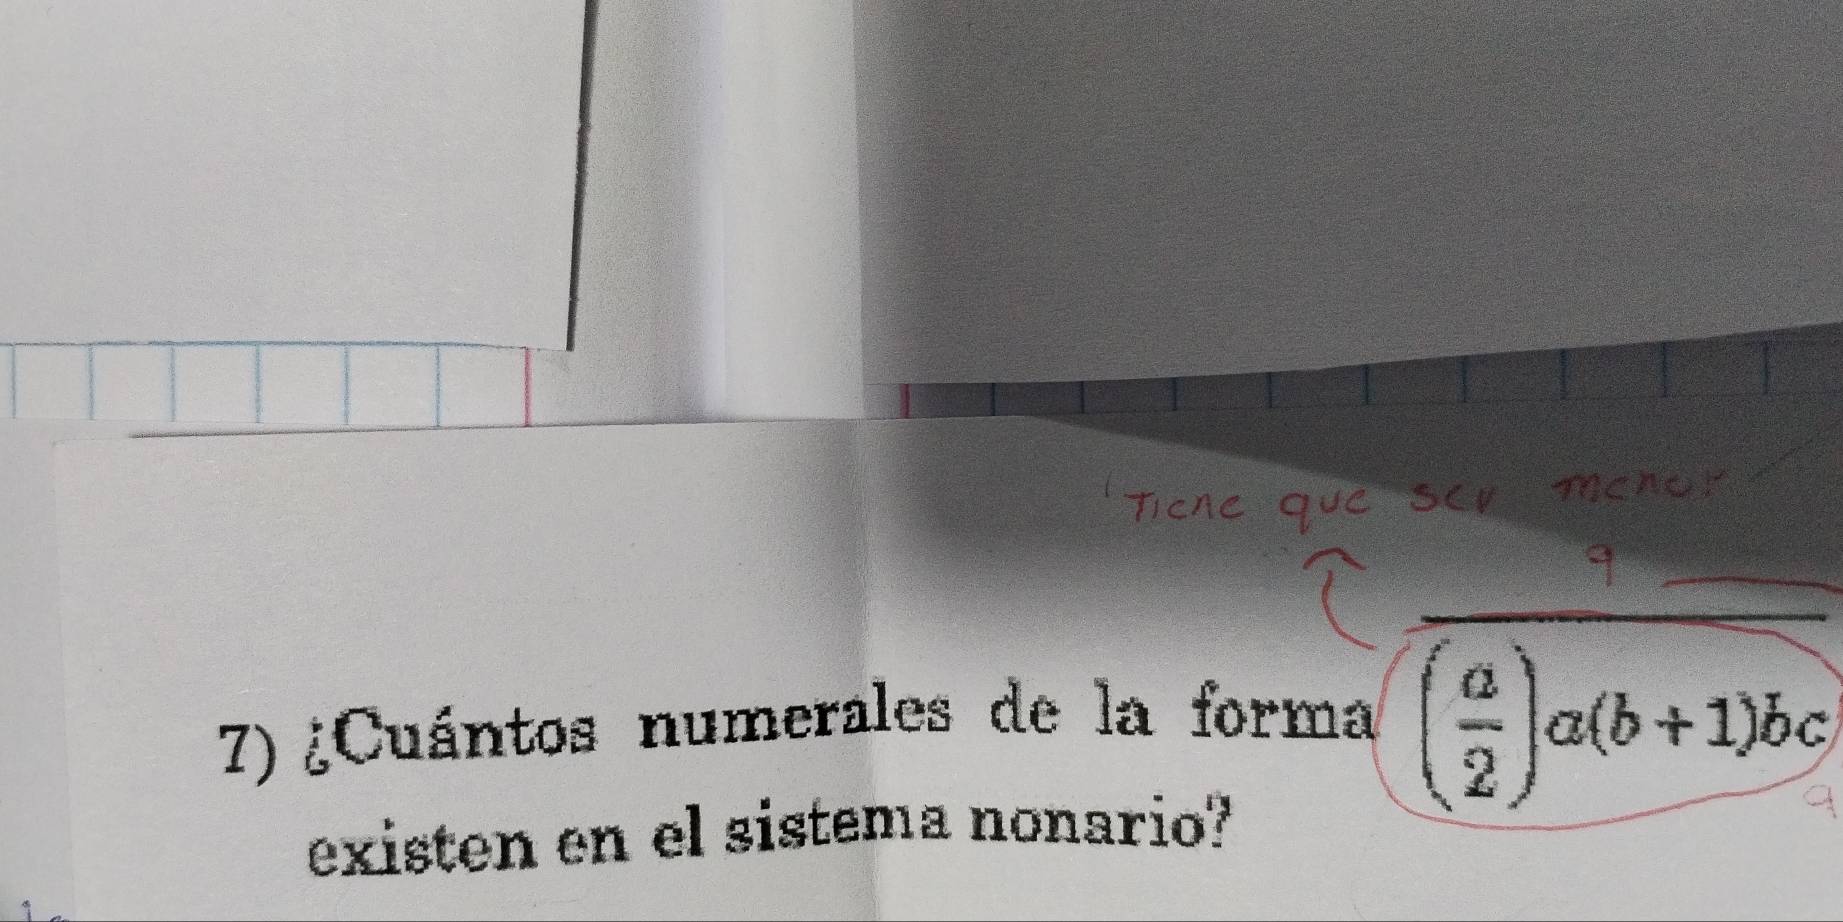 Tiene que ser menor
9
7) ¿Cuántos numerales de la forma (a/2)a(b+1)bc
9
existen en el sistema nonario?